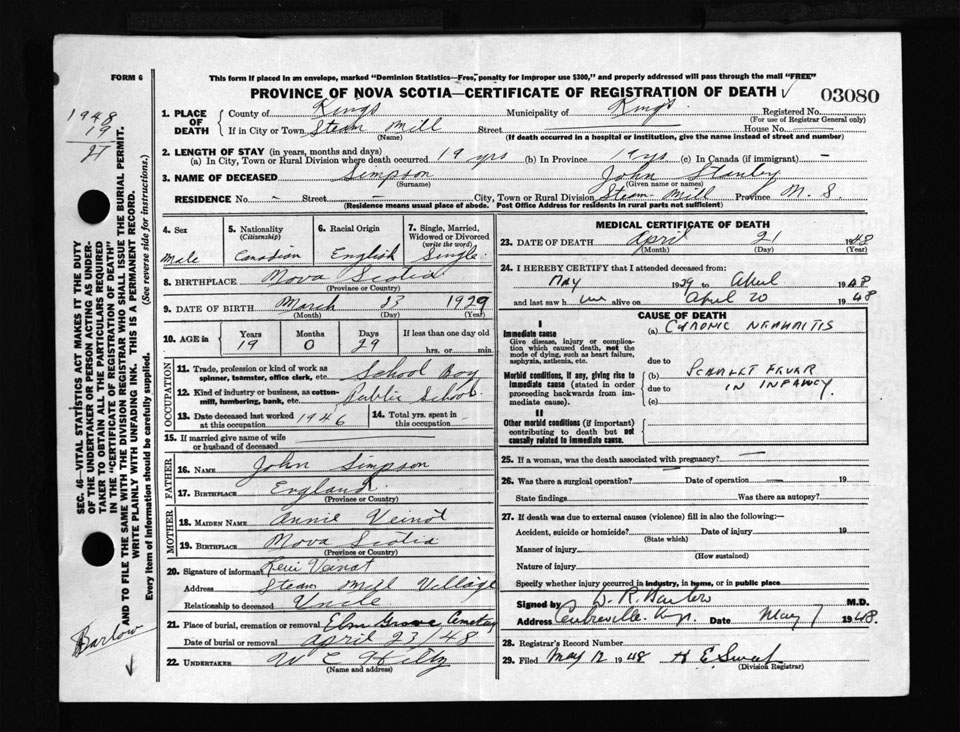 FORM 6
This form if placed in an envelope, marked "Dominion Statistics—Free, penalty for improper use $300," and properly addressed will pass through the mail "FREE"
PROVINCE OF NOVA SCOTIA—CERTIFICATE OF REGISTRATION OF DEATH
03080
1948
19
1. PLACE OF DEATH
County of Kings Municipality of Kings Registered No.
(For use of Registrar General only)
If in City or Town Steam Mill Street House No.
(Name) (If death occurred in a hospital or institution, give the name instead of street and number)
2. LENGTH OF STAY (in years, months and days)
(a) In City, Town or Rural Division where death occurred 19 yrs (b) In Province 19 yrs (c) In Canada (if immigrant) —
3. NAME OF DECEASED Simpson John Stanley
(Surname) (Given name or names)
RESIDENCE No. - Street City, Town or Rural Division Steam Mill Province N. S.
(Residence means usual place of abode. Post Office Address for residents in rural parts not sufficient)
4. Sex Male
5. Nationality (Citizenship) Canadian
6. Racial Origin English
7. Single, Married, Widowed or Divorced (write the word) Single
8. BIRTHPLACE Nova Scotia
(Province or Country)
9. DATE OF BIRTH March 23 1929
(Month) (Day) (Year)
10. AGE in Years Months Days If less than one day
19 0 29 hrs. or min.
OCCUPATION
11. Trade, profession or kind of work as spinner, teamster, office clerk, etc. School Boy
12. Kind of industry or business, as cotton-mill, lumbering, bank, etc. Public School
13. Date deceased last worked at this occupation 1946
14. Total yrs. spent in this occupation
15. If married give name of wife or husband of deceased
FATHER
16. NAME John Simpson
17. BIRTHPLACE England
(Province or Country)
MOTHER
18. MAIDEN NAME Annie Veinot
19. BIRTHPLACE Nova Scotia
(Province or Country)
20. Signature of informant Veinot
Address Steam Mill Village
Relationship to deceased Uncle
21. Place of burial, cremation or removal Elm Grove Cemetery
Date of burial or removal April 23/48
22. UNDERTAKER W C Hiltz
(Name and address)
MEDICAL CERTIFICATE OF DEATH
23. DATE OF DEATH April 21 1948
(Month) (Day) (Year)
24. I HEREBY CERTIFY that I attended deceased from:
May 1929 to April 1948
and last saw him alive on April 20 1948
CAUSE OF DEATH
I
Immediate cause
Give disease, injury or complication which caused death, not the mode of dying, such as heart failure, asphyxia, asthenia, etc.
(a) CHRONIC NEPHRITIS
due to
Morbid conditions, if any, giving rise to immediate cause (stated in order proceeding backwards from immediate cause).
(b) SCARLET FEVER
due to IN INFANCY
(c)
II
Other morbid conditions (if important) contributing to death but not causally related to immediate cause.
25. If a woman, was the death associated with pregnancy? —
26. Was there a surgical operation? — Date of operation — 19
State findings Was there an autopsy?
27. If death was due to external causes (violence) fill in also the following:—
Accident, suicide or homicide? Date of injury 19
(State which)
Manner of injury
(How sustained)
Nature of injury
Specify whether injury occurred in industry, in home, or in public place
Signed by D. R. Barlow M.D.
Address Centreville. Kings. Date May 7 1948.
28. Registrar's Record Number
29. Filed May 12 1948 H E
(Division Registrar)
SEC. 46—VITAL STATISTICS ACT MAKES IT THE DUTY
OF THE UNDERTAKER OR PERSON ACTING AS UNDER-
TAKER TO OBTAIN ALL THE PARTICULARS REQUIRED
IN THE "CERTIFICATE OF REGISTRATION OF DEATH"
AND TO FILE THE SAME WITH THE DIVISION REGISTRAR WHO SHALL ISSUE THE BURIAL PERMIT.
WRITE PLAINLY WITH UNFADING INK. THIS IS A PERMANENT RECORD.
Every item of information should be carefully supplied. (See reverse side for instructions.)
Barlow